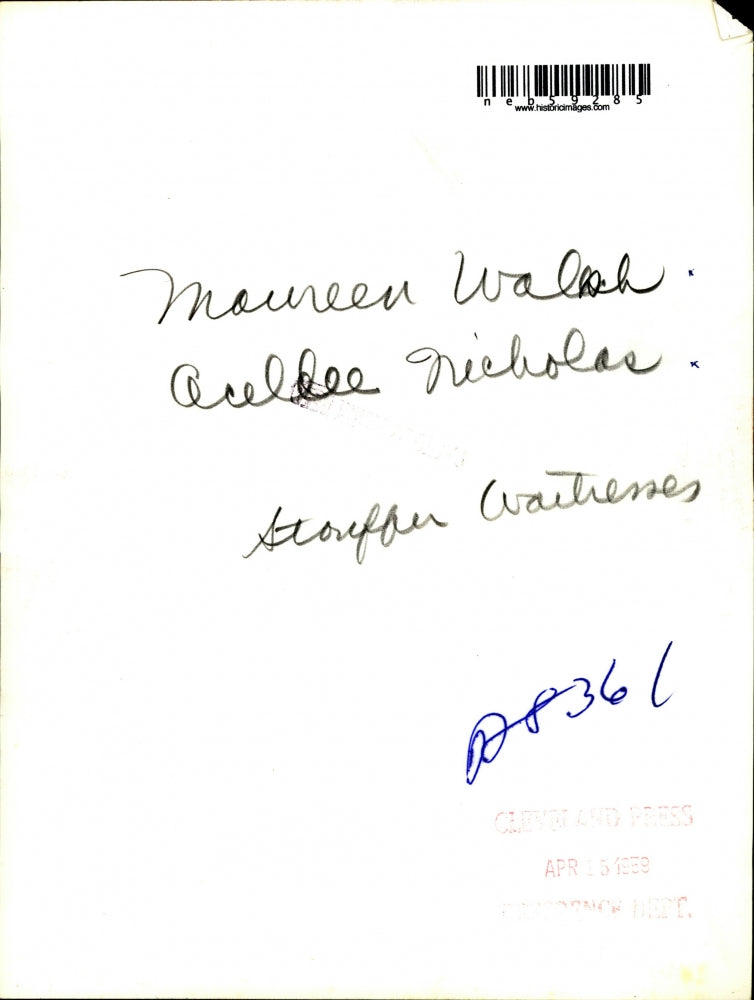 neb59285
www.historicimages.com
Maureen Walsh
Nicholas
Stouffer Waitresses
8361
CLEVELAND PRESS
APR 15 1959
REFERENCE DEPT.